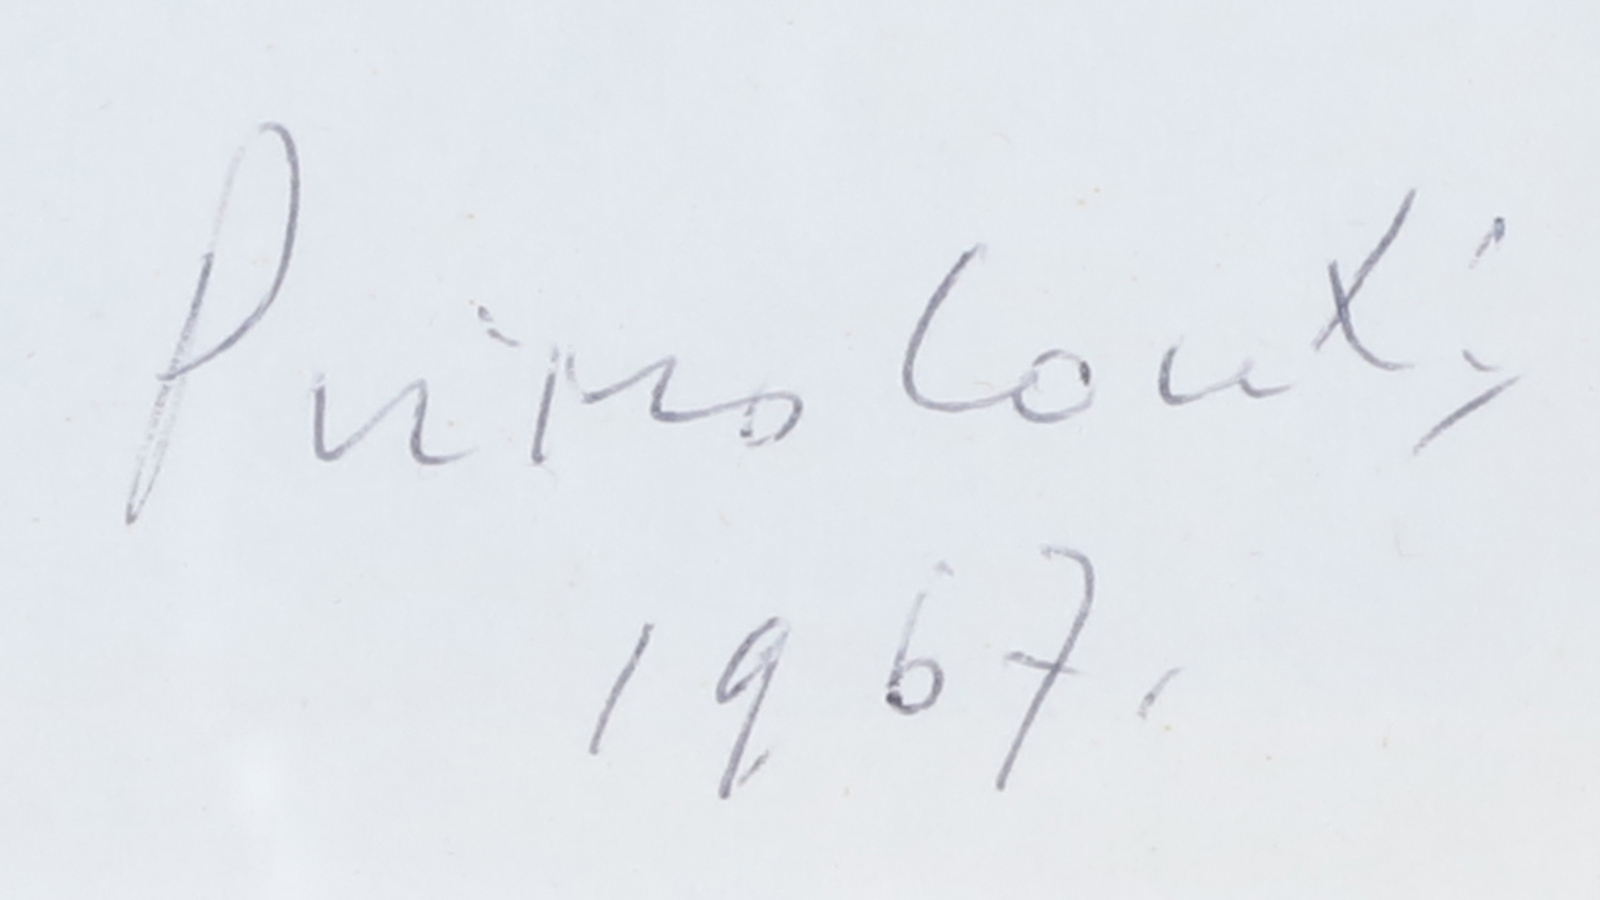 Primo Conti
1967.